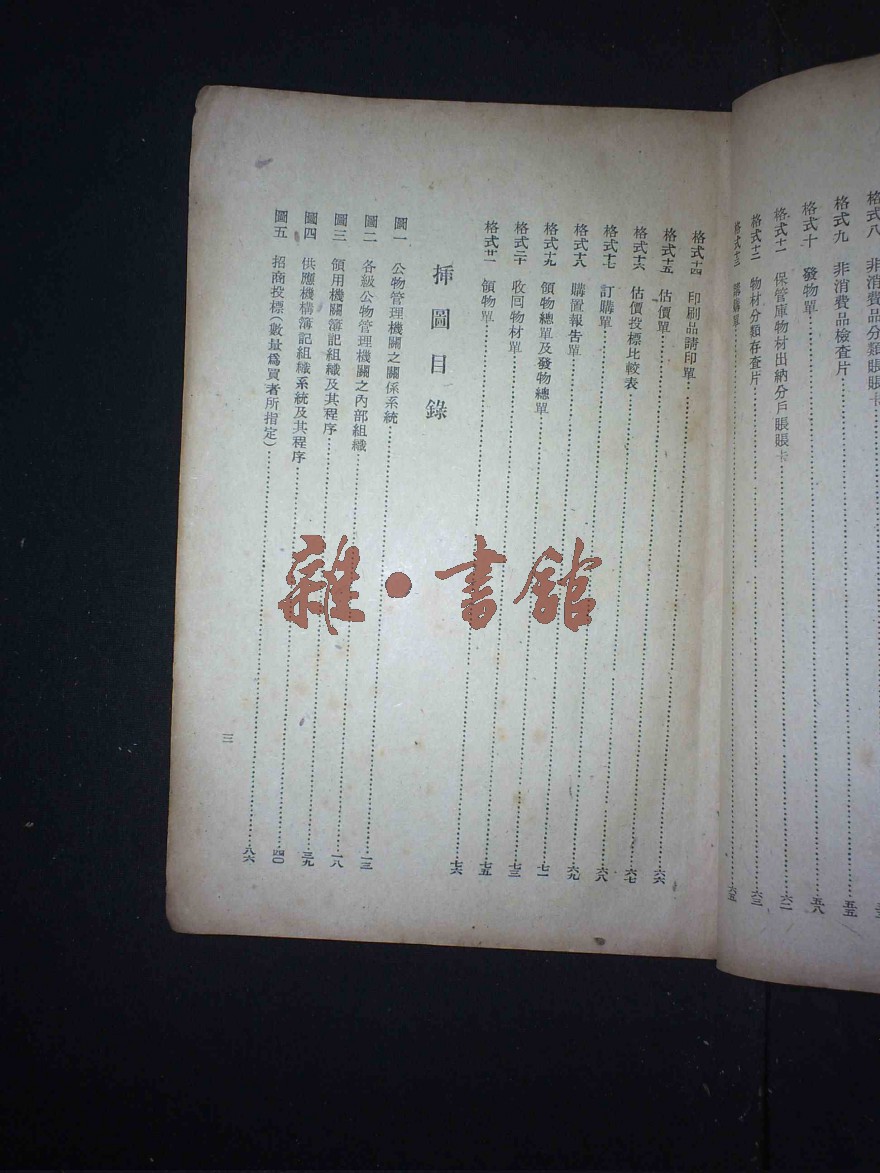 格式八　非消費品分類賬賬卡
格式九　非消費品檢查片……五五
格式十　發物單……五八
格式十一　保管庫物材出納分戶賬賬卡……六二
格式十二　物材分類存查片……六三
格式十三　購單……六五
格式十四　印刷品請印單……六六
格式十五　估價單……六七
格式十六　估價投標比較表……六八
格式十七　訂購單……六九
格式十八　購置報告單……七一
格式十九　領物總單及發物總單……七三
格式二十　收回物材單……七五
格式廿一　領物單……七六
插圖目錄
圖一　公物管理機關之關係系統……一三
圖二　各級公物管理機關之內部組織……一八
圖三　領用機關簿記組織及其程序……三九
圖四　供應機構簿記組織系統及其程序……四〇
圖五　招商投標(數量爲買者所指定)……八六
三
雜·書館